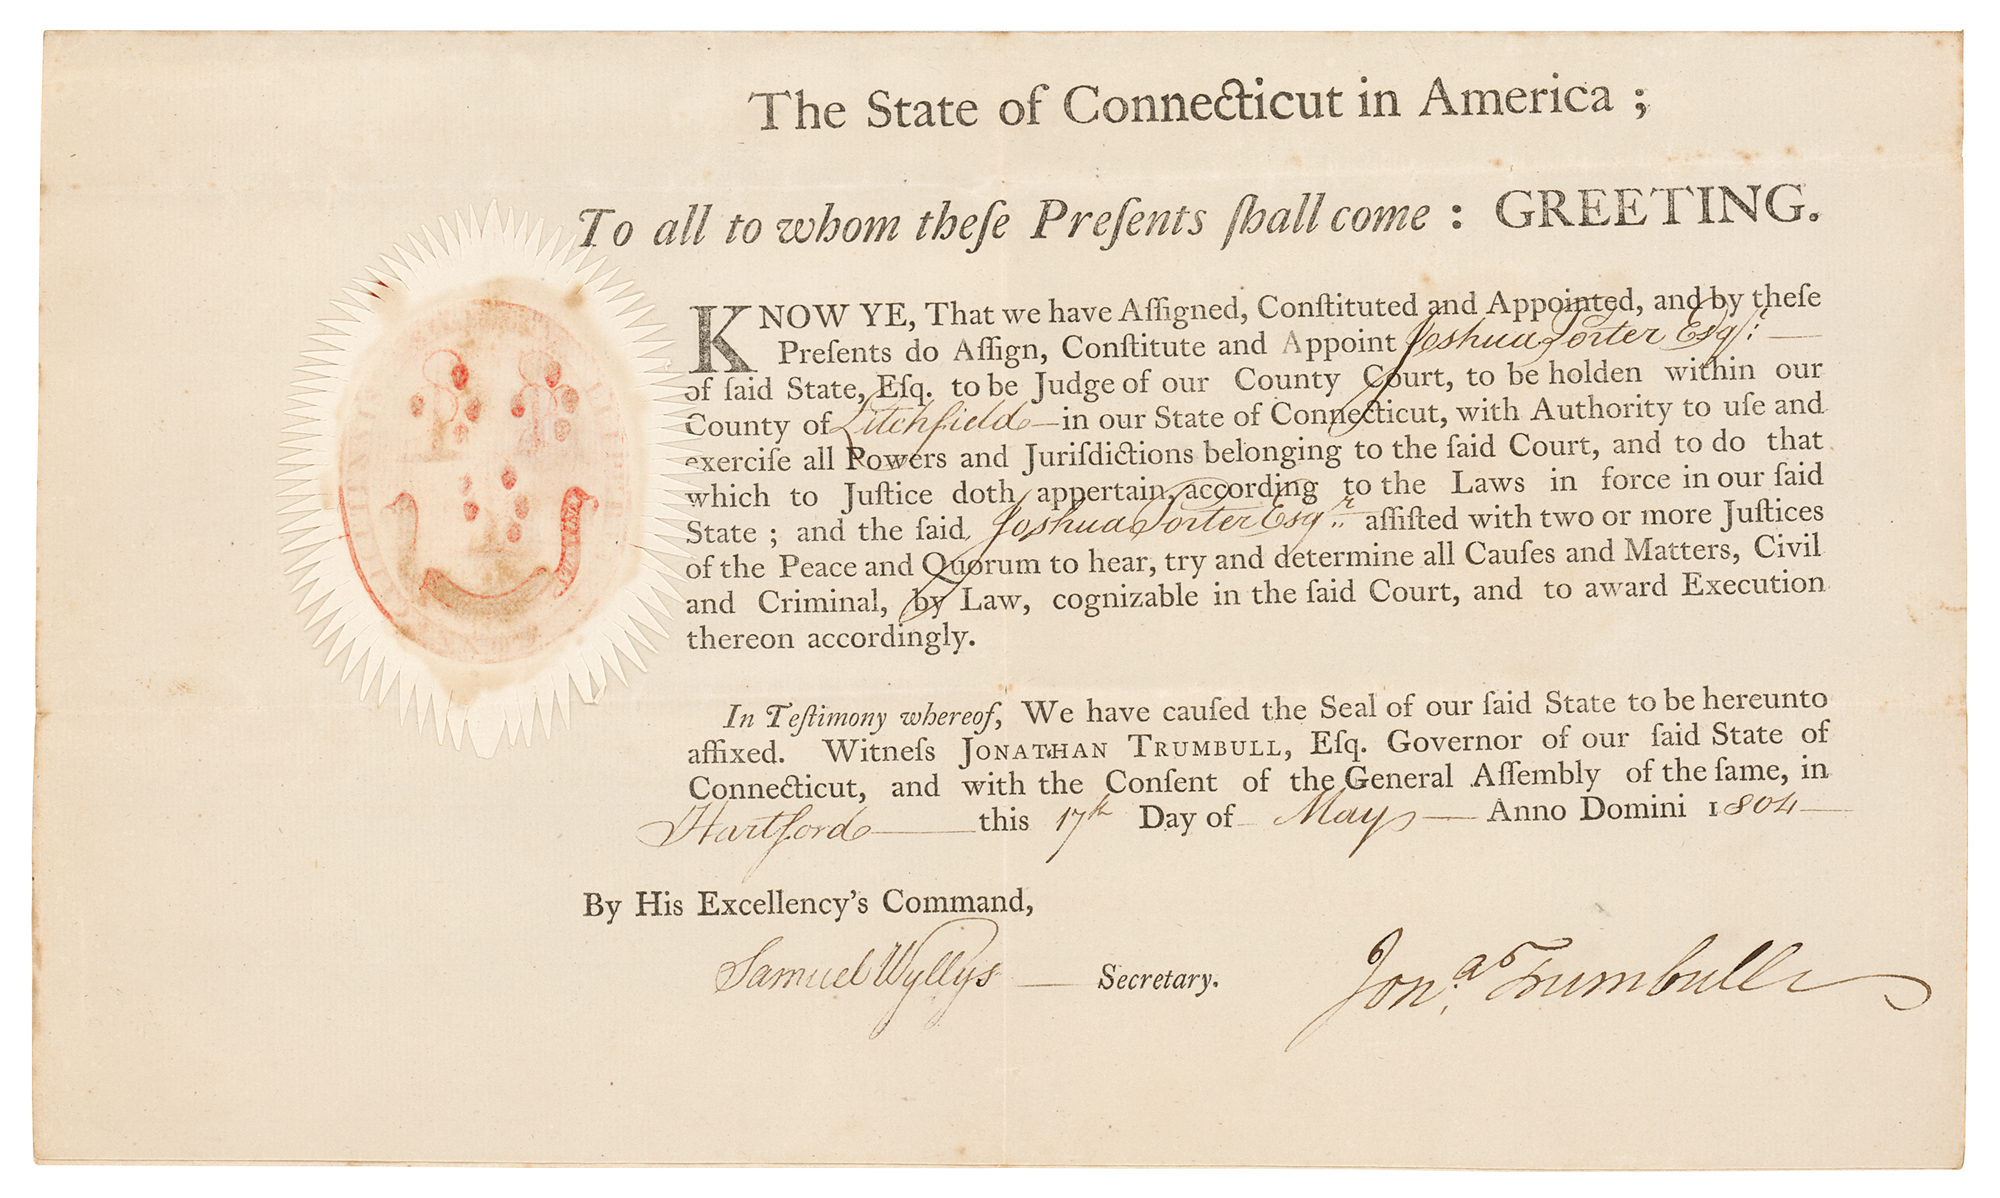 The State of Connecticut in America ;
To all to whom theſe Preſents ſhall come : GREETING.
KNOW YE, That we have Aſſigned, Conſtituted and Appointed, and by theſe
Preſents do Aſſign, Conſtitute and Appoint Joshua Porter Esqr.
of ſaid State, Eſq. to be Judge of our County Court, to be holden within our
County of Litchfield in our State of Connecticut, with Authority to uſe and
exerciſe all Powers and Juriſdictions belonging to the ſaid Court, and to do that
which to Juſtice doth appertain, according to the Laws in force in our ſaid
State ; and the ſaid Joshua Porter Esqr. aſſiſted with two or more Juſtices
of the Peace and Quorum to hear, try and determine all Cauſes and Matters, Civil
and Criminal, by Law, cognizable in the ſaid Court, and to award Execution
thereon accordingly.
In Teſtimony whereof, We have cauſed the Seal of our ſaid State to be hereunto
affixed. Witneſs JONATHAN TRUMBULL, Eſq. Governor of our ſaid State of
Connecticut, and with the Conſent of the General Aſſembly of the ſame, in
Hartford this 17th Day of May Anno Domini 1804
By His Excellency's Command,
Samuel Wyllys Secretary.
Jonas. Trumbull